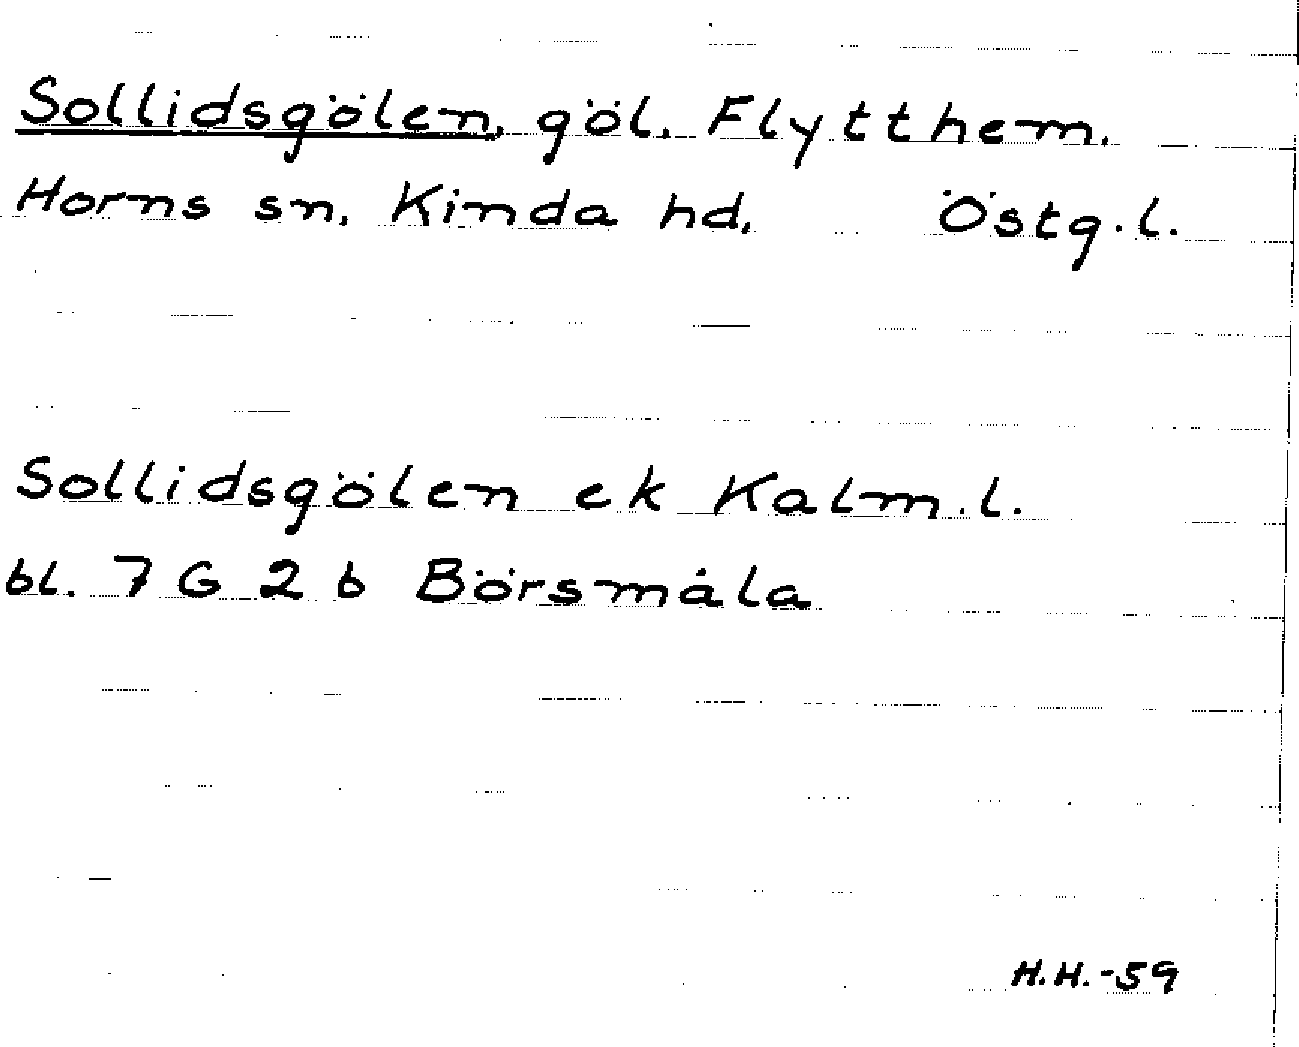 Sollidsgölen, göl. Flytthem.
Horns sn. Kinda hd. Östg.l.
Sollidsgölen ek Kalm.l.
bl. 7 G 2 b Börsmåla
H.H.-59